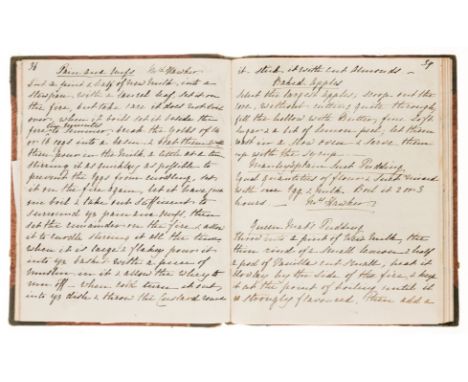 38
Pain and Curds Mrs. Hawker
Put a pint & half of new milk, into a
stewpan, with a laurel leaf, set it on
the fire, but take care it does not boil
over, when it boils set it beside the
fire to simmer, break the yolks of 14
or 16 eggs into a basin & beat them
then pour in the milk a little at a time
stirring it as quickly as possible to
prevent the eggs from curdling, set
it on the fire again, let it have
one boil & take out sufficient to
surround the pain, then
set the remainder on the fire & allow
it to curdle stirring it all the time
when it is large & flakey pour it
into a with a piece of
muslin in it & allow the whey to
run off. when cold turn it out
into the dish & throw the Custard round
39
it. stick it with cut Almonds
Baked Apples
Select the largest apples, scoop out the
core, without cutting quite through,
fill the hollow with Butter, fine Soft
sugar & a bit of lemon peel, let them
in a slow oven & serve them
up with the syrup.
Suet Pudding
Equal quantities of flour & Suet mixed
with one Egg & milk. Boil it 2 or 3
hours Mrs. Hawker
Queen Mab's Pudding
Throw into a pint of New Milk, the
thin rind of a small lemon & half
a pod of Vanilla cut small, heat it
slowly by the side of the fire, & keep
it at the point of boiling until it
is strongly flavored, then add a